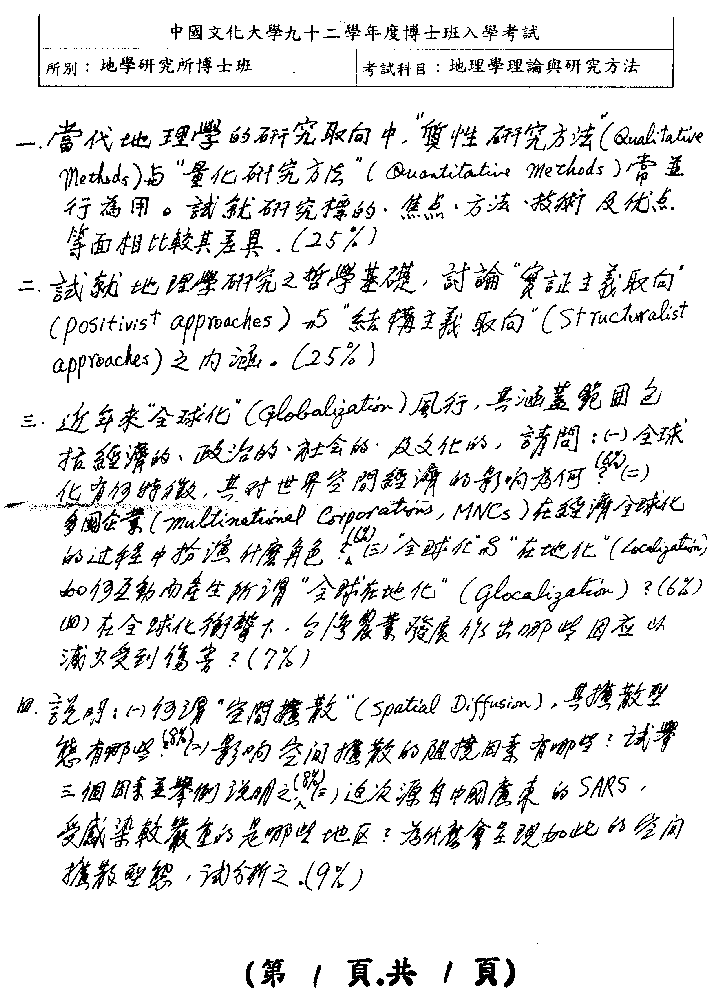 中國文化大學九十二學年度博士班入學考試
所別：地學研究所博士班 考試科目：地理學理論與研究方法
一. 當代地理學的研究取向中，"質性研究方法"(Qualitative
Methods)與"量化研究方法"(Quantitative Methods)常並
行為用。試就研究標的、焦点、方法、技術及优点
等面相比較其差異。(25%)
二. 試就地理學研究之哲學基礎，討論"實証主義取向"
(positivist approaches)与"結構主義取向"(Structuralist
approaches)之內涵。(25%)
三. 近年來"全球化"(Globalization)風行，其涵蓋範囲包
括經濟的、政治的、社会的、及文化的，請問：(一)全球
化有何特徵，其対世界空間經濟的影响為何？(6%)(二)
多國企業(Multinational Corporations, MNCs)在經濟全球化
的过程中扮演什麼角色？(6%)(三)"全球化"与"在地化"(Localization)
如何互動而產生所謂"全球在地化"(Glocalization)？(6%)
(四)在全球化衝擊下，台灣農業發展作出哪些因应以
減少受到傷害？(7%)
四. 説明：(一)何謂"空間擴散"(Spatial Diffusion)，其擴散型
態有哪些？(8%)(二)影响空間擴散的阻撓因素有哪些？試舉
三個因素並舉例説明之。(8%)(三)近次源自中國廣東的SARS，
受感染較嚴重的是哪些地区？為什麼會呈現如此的空間
擴散型態，試分析之。(9%)
(第 1 頁.共 1 頁)